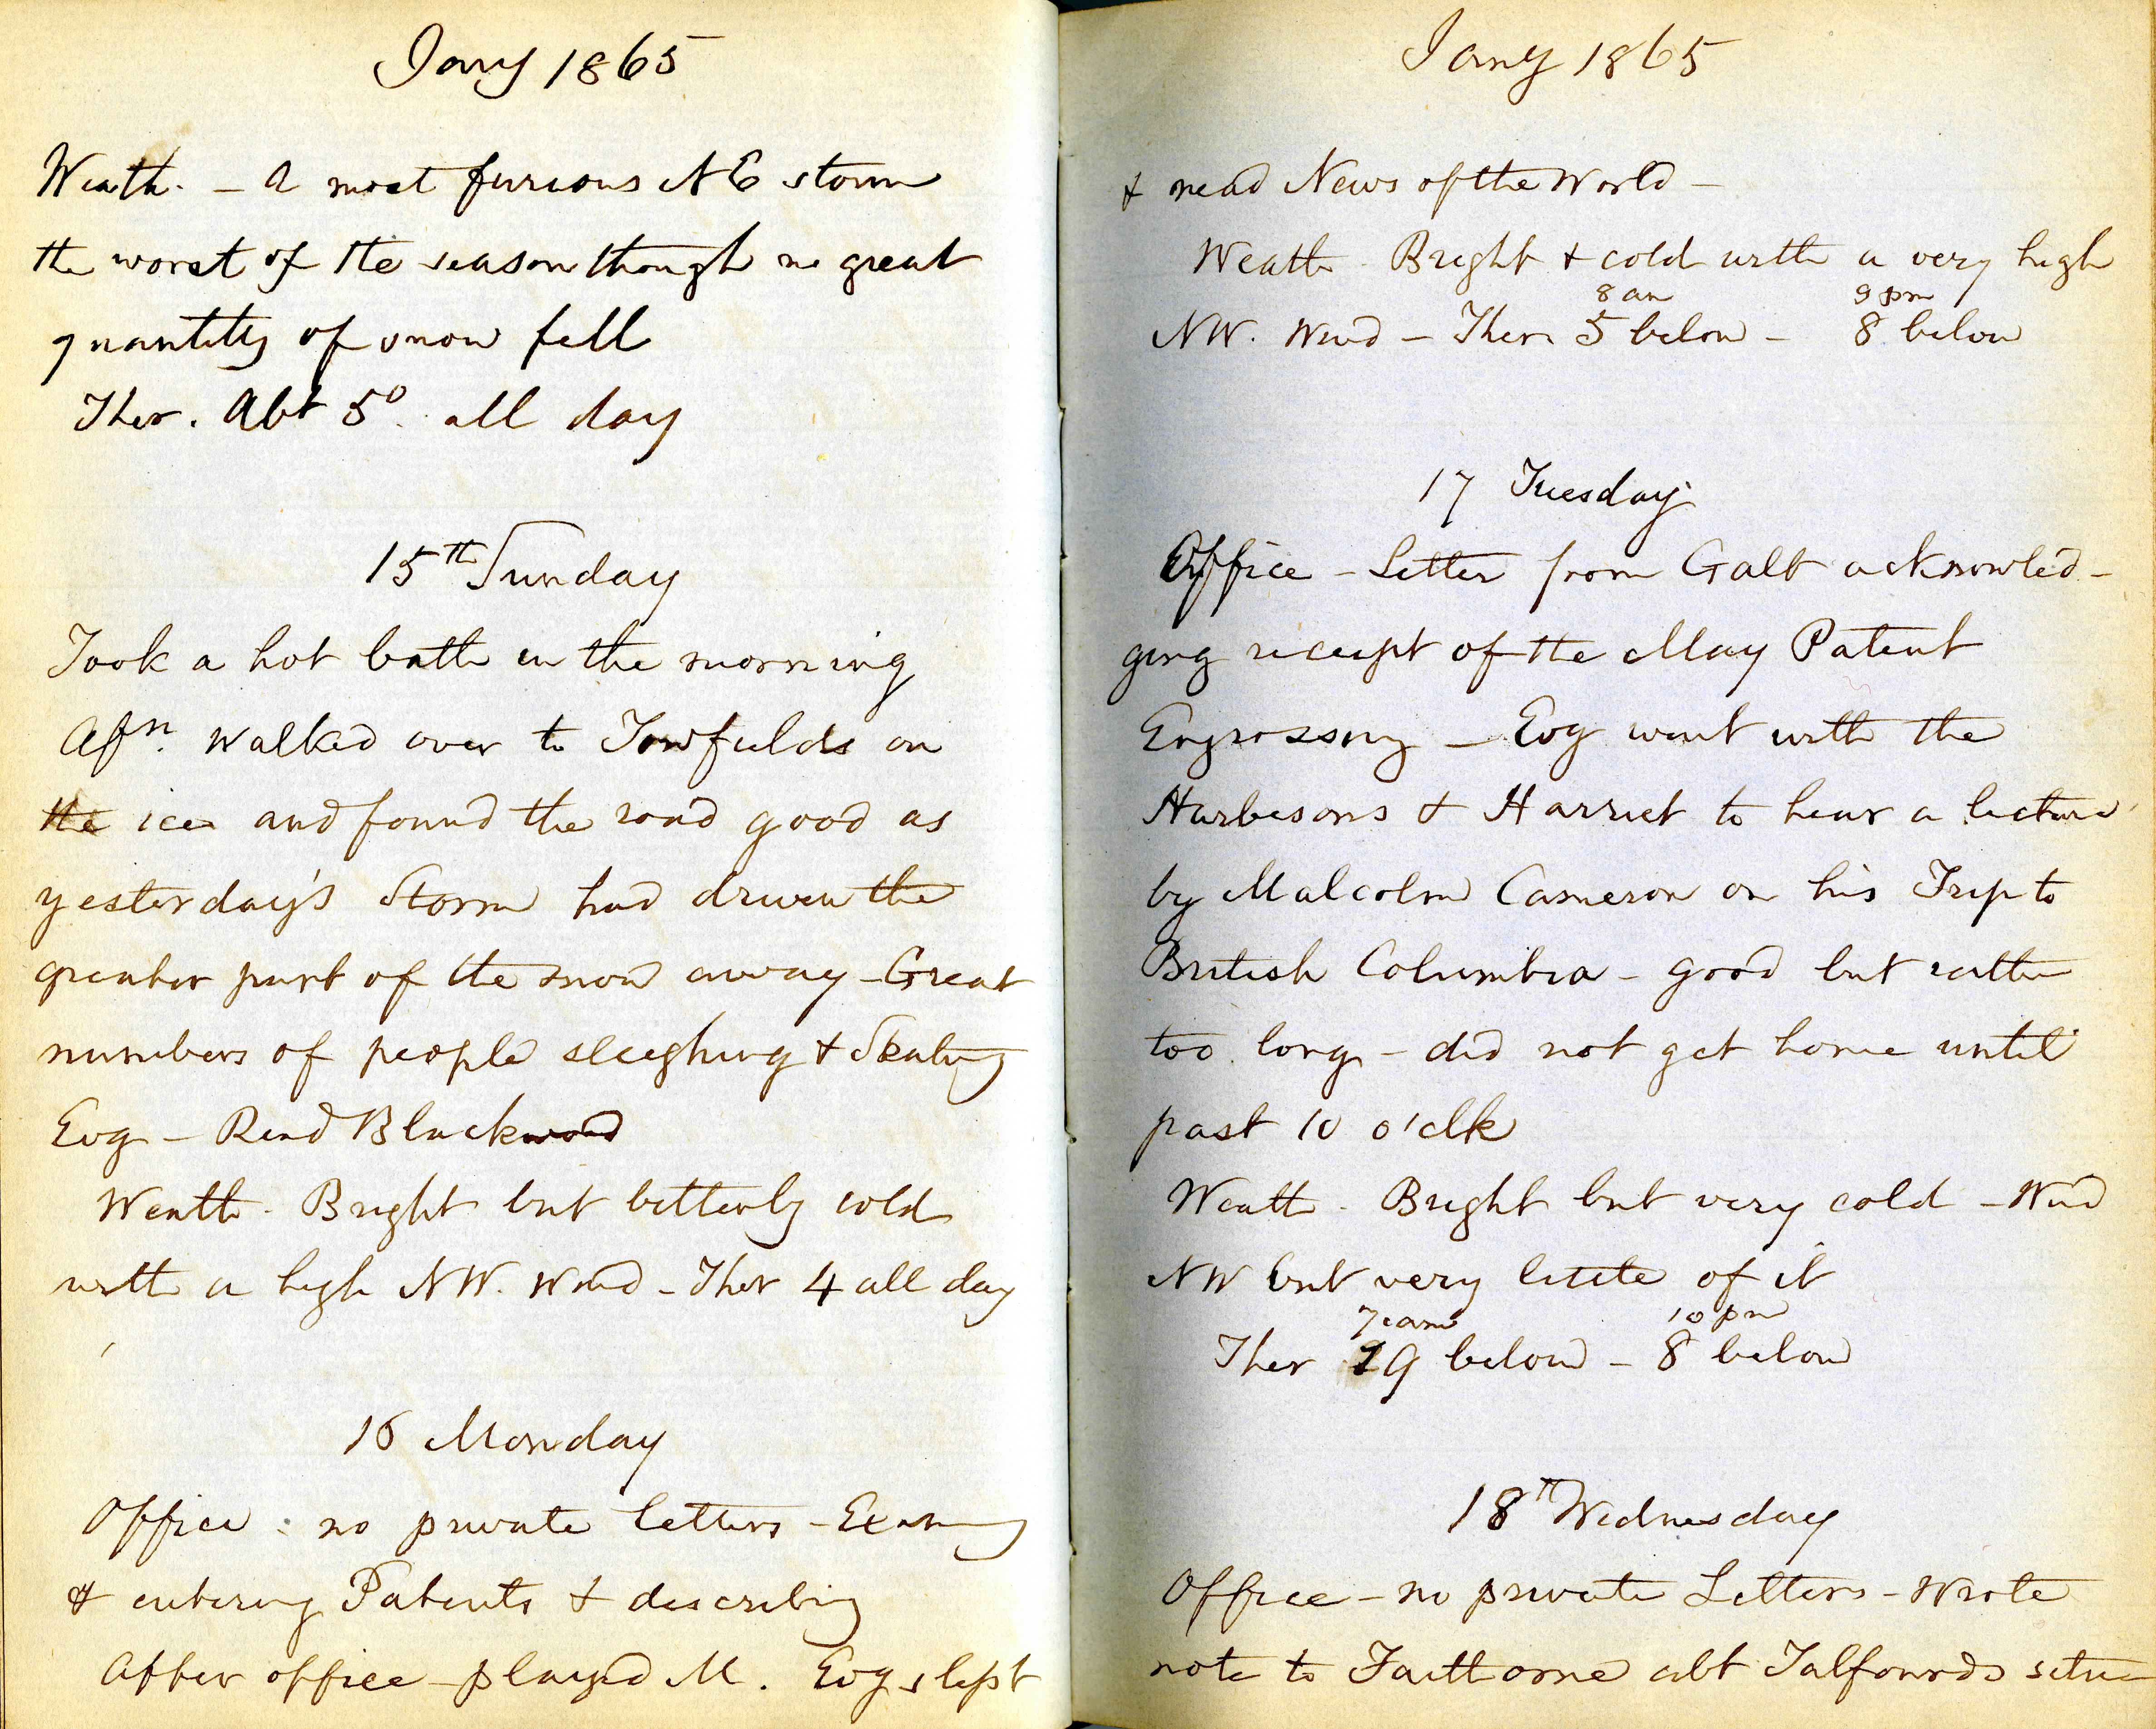 Jany 1865
Weath. - A most furious NE storm
the worst of the season though no great
quantity of snow fell
Ther. Abt 5° all day
15th Sunday
Took a hot bath in the morning
Afn. walked over to Towfields on
the ice and found the road good as
yesterday's Storm had driven the
greater part of the snow away - Great
numbers of people sleighing & Skating
Evg - Read Blackwood
Weath - Bright but bitterly cold
with a high NW. Wind - Ther 4 all day
16 Monday
Office - no private letters - Examg
& entering Patents & describing
After office - played M. Evg slept
Jany 1865
& read News of the World -
Weath - Bright & cold with a very high
8 am 9 pm
NW. Wind - Ther 5 below - 8 below
17 Tuesday
Office - Letter from Galt acknowled-
ging receipt of the May Patent
Engrossing - Evg went with the
Harbesons & Harriet to hear a lecture
by Malcolm Cameron on his Trip to
British Columbia - good but rather
too long - did not get home until
past 10 o'clk
Weath - Bright but very cold - Wind
NW but very little of it
7 am 10 pm
Ther 19 below - 8 below
18th Wednesday
Office - no private Letters - Wrote
note to Faitthorne abt Talfourds situa